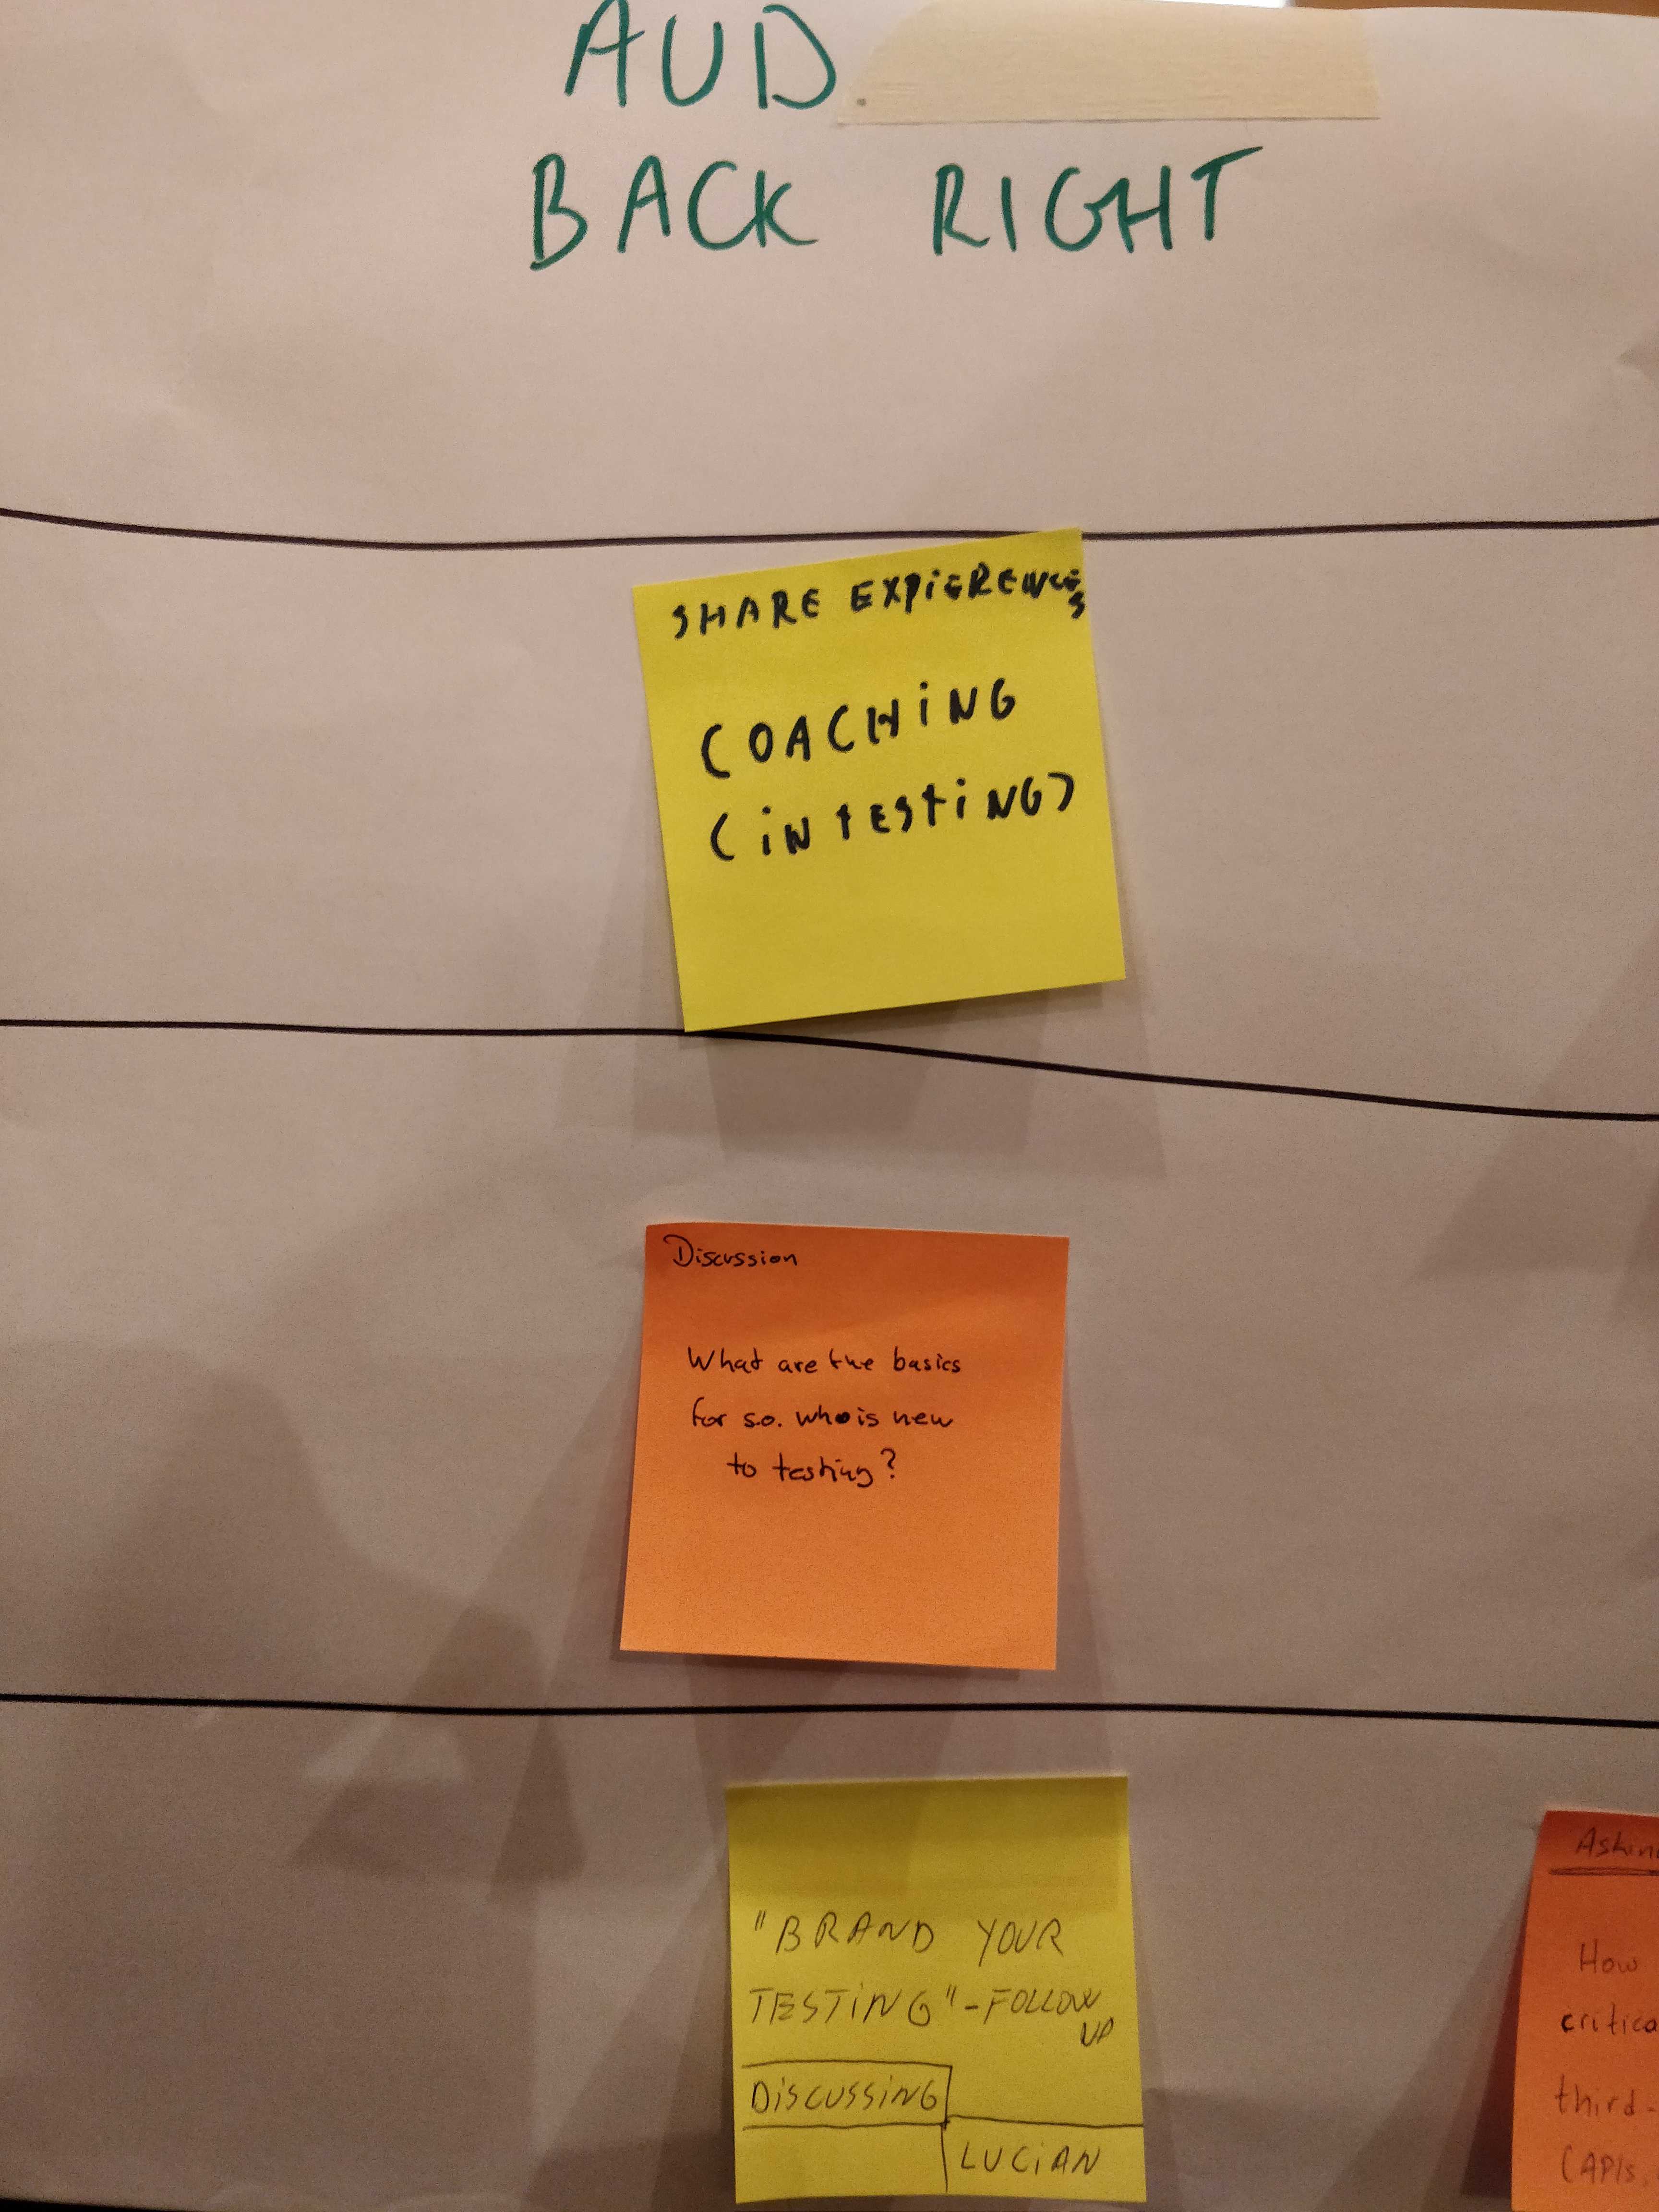 AUD.
BACK RIGHT
SHARE EXPIERENCES
COACHING
(iN TESTiNG)
Discussion
What are the basics
for s.o. who is new
to testing?
"BRAND YOUR
TESTiNG" - FOLLOW
UP
DiSCUSSiNG
LUCiAN
How
third-
(APIs,